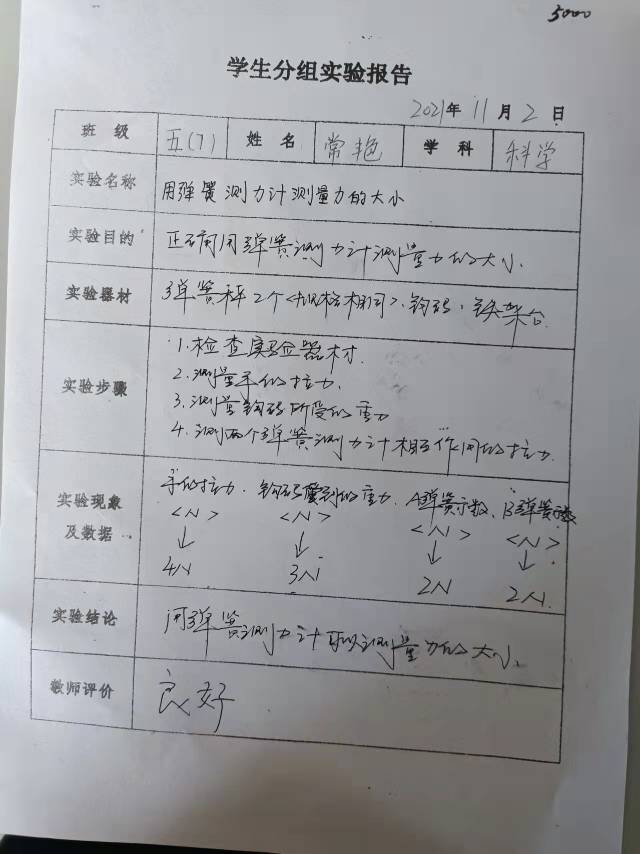 5000
学生分组实验报告
2021年 11月 2日
班级 五(7) 姓名 常艳 学科 科学
实验名称 用弹簧测力计测量力的大小
实验目的 正确用弹簧测力计测量力的大小.
实验器材 弹簧秤2个<规格相同>、钩码、铁架台.
实验步骤
1.检查实验器材.
2.测量手的拉力.
3.测量钩码所受的重力
4.测两个弹簧测力计相互作用的拉力.
实验现象及数据
手的拉力、钩码受到的重力、A弹簧示数、B弹簧示数
<N> <N> <N> <N>
↓ ↓ ↓ ↓
4N 3N 2N 2N.
实验结论 用弹簧测力计可以测量力的大小.
教师评价 良好